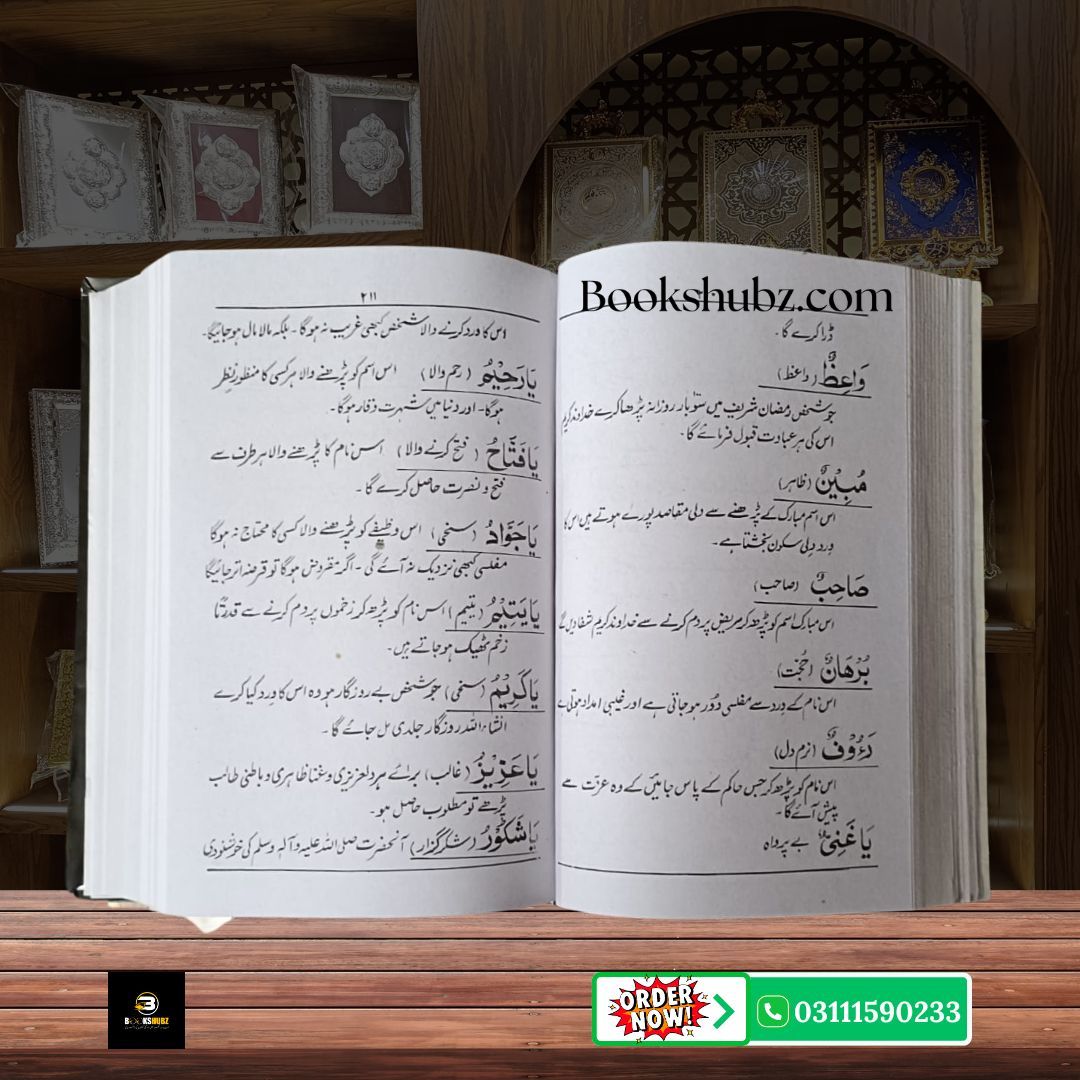 Bookshubz.com
ڈرا کرے گا ۔
وَاعِظٌ (واعظ)
جو شخص رمضان شریف میں ستو بار روزانہ پڑھا کرے خداوند کریم
اس کی ہر عبادت قبول فرمائے گا۔
مُبِیْنٌ (ظاہر)
اس اسم مبارک کے پڑھنے سے دلی مقاصد پورے ہوتے ہیں اس کا
ورد دلی سکون بخشتا ہے۔
صَاحِبٌ (صاحب)
اس مبارک اسم کو پڑھ کر مریض پر دم کرنے سے خداوند کریم شفا دیں گے
بُرْهَانٌ (حُجّت)
اس نام کے ورد سے مفلسی دُور ہو جاتی ہے اور غیبی امداد ہوتی ہے
رَءُوْفٌ (نرم دل)
اس نام کو پڑھ کر جس حاکم کے پاس جائیں گے وہ عزّت سے
پیش آئے گا۔
یَا غَنِیُّ بے پرواہ
۲۱۱
اس کا ورد کرنے والا شخص کبھی غریب نہ ہوگا ۔ بلکہ مالا مال ہو جائیگا۔
یَا رَحِیْمُ (رحم والا) اس اسم کو پڑھنے والا ہر کسی کا منظورِ نظر
ہوگا۔ اور دنیا میں شہرت وقار ہوگا۔
یَا فَتَّاحُ (فتح کرنے والا) اس نام کا پڑھنے والا ہر طرف سے
فتح و نصرت حاصل کرے گا ۔
یَا جَوَّادُ (سخی) اس وظیفے کو پڑھنے والا کسی کا محتاج نہ ہوگا
مفلسی کبھی نزدیک نہ آئے گی ۔ اگر مقروض ہوگا تو قرضہ اتر جائیگا
یَا یَتِیْمُ (یتیم) اس نام کو پڑھ کر زخموں پر دم کرنے سے قدرتًا
زخم ٹھیک ہو جاتے ہیں۔
یَا کَرِیْمُ (سخی) جو شخص بے روزگار ہو وہ اس کا ورد کیا کرے
انشاء اللہ روزگار جلدی مل جائے گا ۔
یَا عَزِیْزُ (غالب) برائے ہر دلعزیزی و غنا ظاہری و باطنی طالب
پڑھے تو مطلوب حاصل ہو۔
یَا شَکُوْرُ (شکر گزار) آنحضرت صلی اللہ علیہ وآلہٖ وسلم کی خوشنودی
BOOKSHUBZ
ORDER NOW!
03111590233